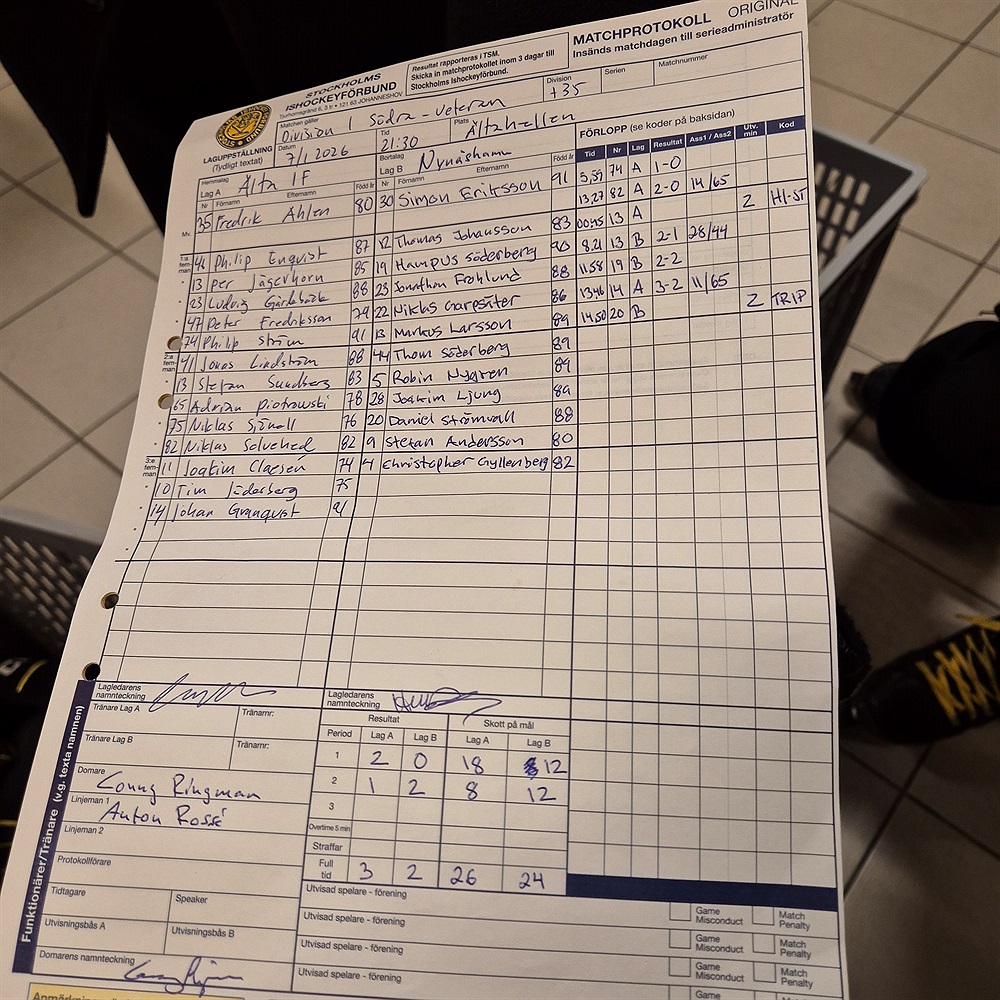 MATCHPROTOKOLL ORIGINAL
Insänds matchdagen till serieadministratör
STOCKHOLMS
ISHOCKEYFÖRBUND
Tjurhornsgränd 6, 3 tr • 121 63 JOHANNESHOV
Resultat rapporteras i TSM.
Skicka in matchprotokollet inom 3 dagar till
Stockholms Ishockeyförbund.
LAGUPPSTÄLLNING
(Tydligt textat)
Matchen gäller Division 1 Södra - Veteran
Division +35
Serien
Matchnummer
Datum 7/1 2026
Tid 21:30
Plats Ältahallen
Hemmalag
Lag A Älta IF
Bortalag
Lag B Nynäshamn
FÖRLOPP (se koder på baksidan)
Nr Förnamn Efternamn Född år Nr Förnamn Efternamn
Tid Nr Lag Resultat Ass1 / Ass2 Utv. min Kod
Mv. 35 Fredrik Ahlén 80 30 Simon Eriksson 91
1:a fem-man 46 Philip Enqvist 87 12 Thomas Johansson 83
13 Per Jägerhorn 85 19 Hampus Söderberg 90
23 Ludvig Gärdebäck 88 23 Jonathan Frohlund 88
47 Peter Fredriksson 79 22 Niklas Garpsäter 86
74 Philip Ström 91 13 Markus Larsson 89
2:a fem-man 41 Jonas Lindström 88 44 Thom Söderberg 89
13 Stefan Sundberg 83 5 Robin Nygren 89
65 Adrian Piotrowski 78 28 Joakim Ljung 89
75 Niklas Sjövall 76 20 Daniel Strömvall 88
82 Niklas Salvehed 82 9 Stefan Andersson 80
3:e fem-man 11 Joakim Claesén 74 4 Christopher Gyllenberg 82
10 Tim Söderberg 75
14 Johan Granqvist 91
5,59 74 A 1-0
13,27 82 A 2-0 14/65
00:45 13 A 2 HI-ST
8.21 13 B 2-1 28/44
11.58 19 B 2-2
13.46 14 A 3-2 11/65
14.50 20 B 2 TRIP
Funktionärer/Tränare (v.g. texta namnen)
Lagledarens namnteckning
Lagledarens namnteckning
Tränare Lag A
Tränarnr:
Tränare Lag B
Tränarnr:
Domare Conny Ringman
Linjeman 1 Anton Rossé
Linjeman 2
Protokollförare
Tidtagare
Speaker
Utvisningsbås A
Utvisningsbås B
Domarens namnteckning
Resultat Skott på mål
Period Lag A Lag B Lag A Lag B
1 2 0 18 12
2 1 2 8 12
3
Overtime 5 min
Straffar
Full tid 3 2 26 24
Utvisad spelare - förening Game Misconduct Match Penalty
Utvisad spelare - förening Game Misconduct Match Penalty
Utvisad spelare - förening Game Misconduct Match Penalty
Utvisad spelare - förening Game Match